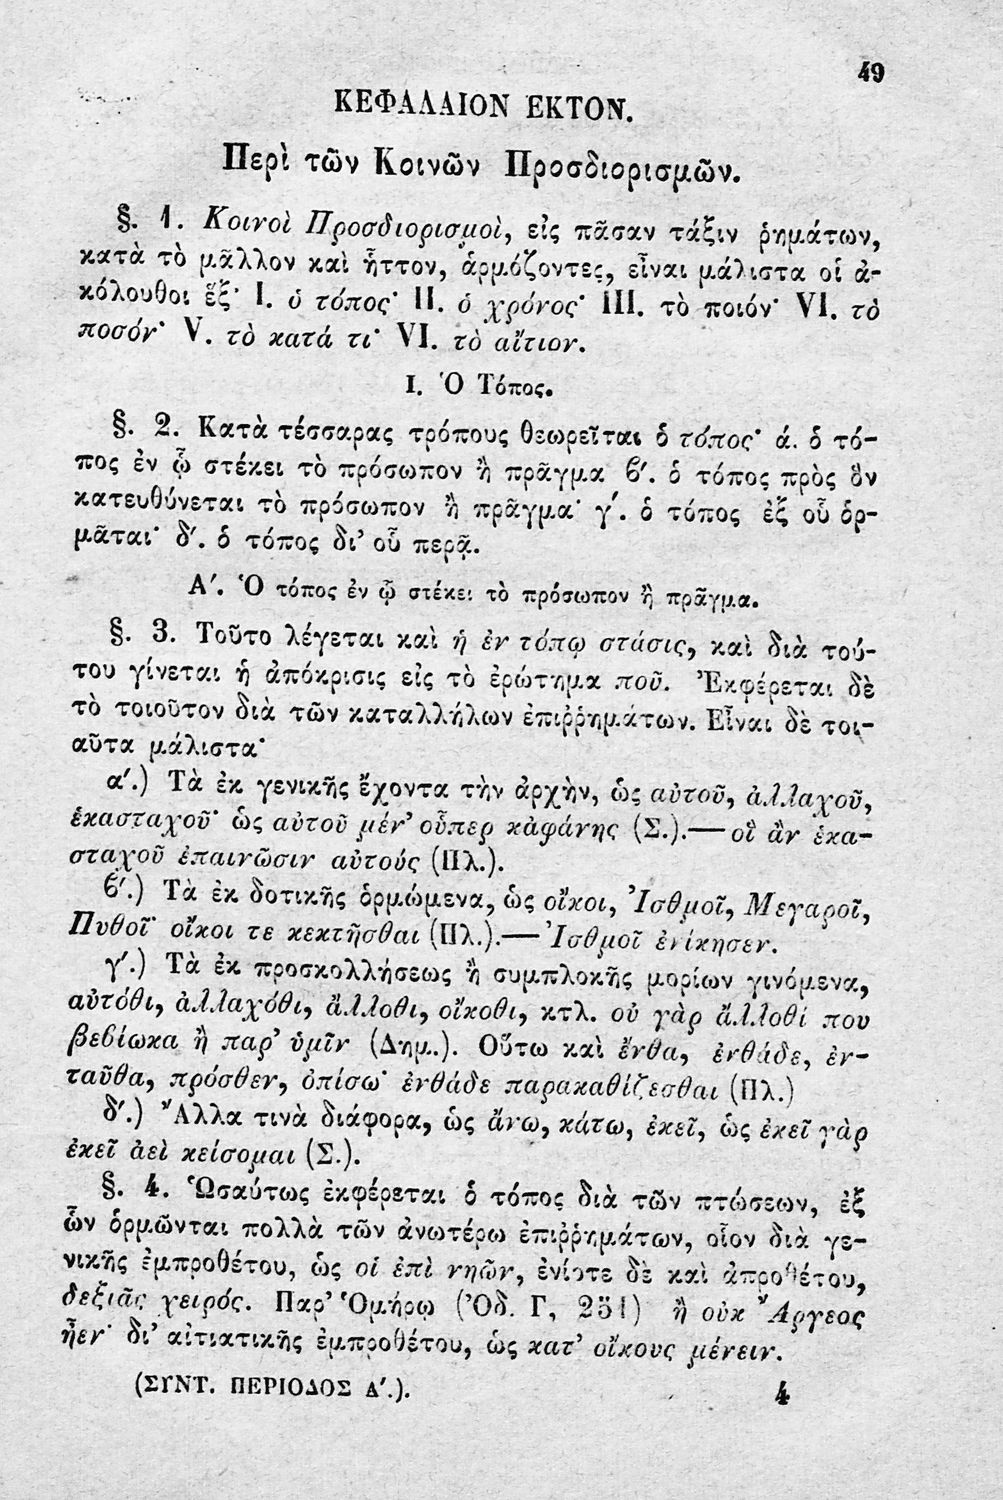 49
ΚΕΦΑΛΑΙΟΝ ΕΚΤΟΝ.
Περὶ τῶν Κοινῶν Προσδιορισμῶν.
§. 1. Κοινοὶ Προσδιορισμοὶ, εἰς πᾶσαν τάξιν ῥημάτων,
κατὰ τὸ μᾶλλον καὶ ἧττον, ἁρμόζοντες, εἶναι μάλιστα οἱ ἀ-
κόλουθοι ἕξ· I. ὁ τόπος· II. ὁ χρόνος· III. τὸ ποιόν· VI. τὸ
ποσόν· V. τὸ κατά τι· VI. τὸ αἴτιον.
I. Ὁ Τόπος.
§. 2. Κατὰ τέσσαρας τρόπους θεωρεῖται ὁ τόπος· ά. ὁ τό-
πος ἐν ᾧ στέκει τὸ πρόσωπον ἢ πρᾶγμα ϐ′. ὁ τόπος πρὸς ὃν
κατευθύνεται τὸ πρόσωπον ἢ πρᾶγμα· γ′. ὁ τόπος ἐξ οὗ ὁρ-
μᾶται· δ′. ὁ τόπος δι’ οὗ περᾷ.
Α′. Ὁ τόπος ἐν ᾧ στέκει τὸ πρόσωπον ἢ πρᾶγμα.
§. 3. Τοῦτο λέγεται καὶ ἡ ἐν τόπῳ στάσις, καὶ διὰ τού-
του γίνεται ἡ ἀπόκρισις εἰς τὸ ἐρώτημα ποῦ. Ἐκφέρεται δὲ
τὸ τοιοῦτον διὰ τῶν καταλλήλων ἐπιῤῥημάτων. Εἶναι δὲ τοι-
αῦτα μάλιστα·
α′.) Τὰ ἐκ γενικῆς ἔχοντα τὴν ἀρχὴν, ὡς αὐτοῦ, ἀλλαχοῦ,
ἑκασταχοῦ· ὡς αὐτοῦ μέν’ οὗπερ κἀφάνης (Σ.).—οἳ ἂν ἑκα-
σταχοῦ ἐπαινῶσιν αὐτούς (Πλ.).
ϐ′.) Τὰ ἐκ δοτικῆς ὁρμώμενα, ὡς οἴκοι, Ἰσθμοῖ, Μεγαροῖ,
Πυθοῖ· οἴκοι τε κεκτῆσθαι (Πλ.).—Ἰσθμοῖ ἐνίκησεν.
γ′.) Τὰ ἐκ προσκολλήσεως ἢ συμπλοκῆς μορίων γινόμενα,
αὐτόθι, ἀλλαχόθι, ἄλλοθι, οἴκοθι, κτλ. οὐ γὰρ ἄλλοθί που
βεβίωκα ἢ παρ’ ὑμῖν (Δημ.). Οὕτω καὶ ἔνθα, ἐνθάδε, ἐν-
ταῦθα, πρόσθεν, ὀπίσω· ἐνθάδε παρακαθίζεσθαι (Πλ.)
δ′.) Ἄλλα τινὰ διάφορα, ὡς ἄνω, κάτω, ἐκεῖ, ὡς ἐκεῖ γὰρ
ἐκεῖ ἀεὶ κείσομαι (Σ.).
§. 4. Ὡσαύτως ἐκφέρεται ὁ τόπος διὰ τῶν πτώσεων, ἐξ
ὧν ὁρμῶνται πολλὰ τῶν ἀνωτέρω ἐπιῤῥημάτων, οἷον διὰ γε-
νικῆς ἐμπροθέτου, ὡς οἱ ἐπὶ νηῶν, ἐνίοτε δὲ καὶ ἀπροθέτου,
δεξιᾶς χειρός. Παρ’ Ὁμήρῳ (Ὀδ. Γ, 251) ἢ οὐκ Ἄργεος
ἦεν· δι’ αἰτιατικῆς ἐμπροθέτου, ὡς κατ’ οἴκους μένειν.
(ΣΥΝΤ. ΠΕΡΙΟΔΟΣ Δ′.). 4